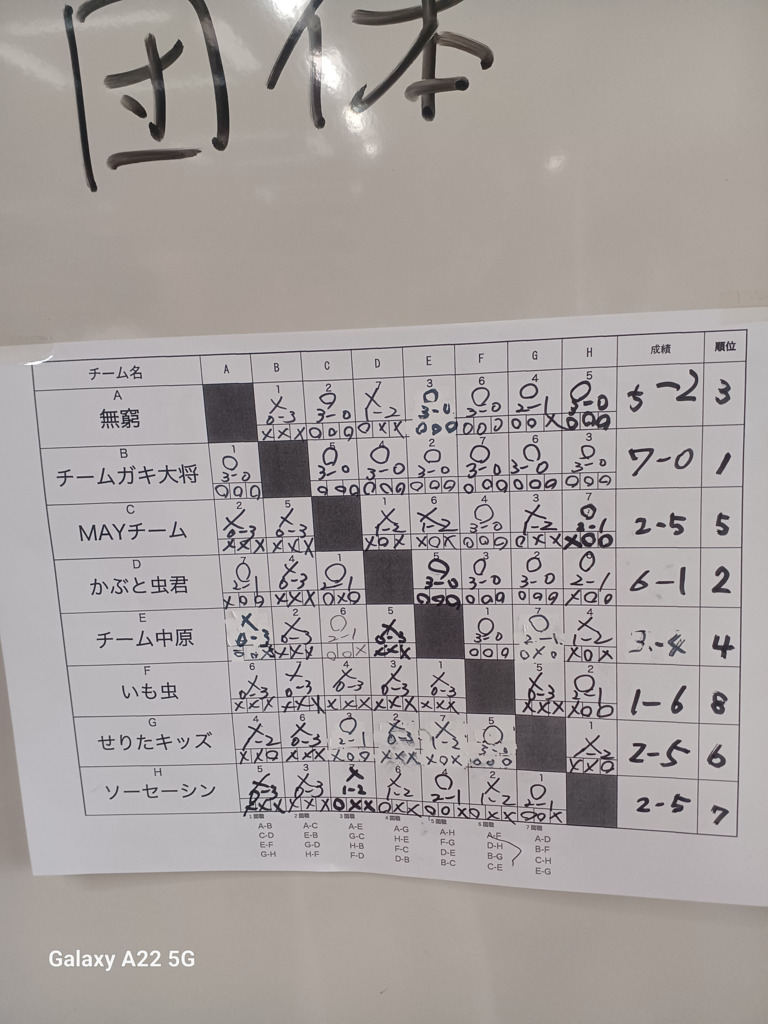 団体
チーム名 A B C D E F G H 成績 順位
A
無窮
1 2 7 3 6 4 5
× ○ × ○ ○ ○ ○
0-3 3-0 1-2 3-0 3-0 2-1 3-0
××× ○○○ ○×× ○○○ ○○○ ○○× ○○○
5-2 3
B
チームガキ大将
1 5 4 2 7 6 3
○ ○ ○ ○ ○ ○ ○
3-0 3-0 3-0 3-0 3-0 3-0 3-0
○○○ ○○○ ○○○ ○○○ ○○○ ○○○ ○○○
7-0 1
C
MAYチーム
2 5 1 6 4 3 7
× × × × ○ × ○
0-3 0-3 1-2 1-2 3-0 1-2 2-1
××× ××× ×○× ×○× ○○○ ○×× ×○○
2-5 5
D
かぶと虫君
7 4 1 5 3 2 6
○ × ○ ○ ○ ○ ○
2-1 0-3 2-1 3-0 3-0 3-0 2-1
×○○ ××× ○×○ ○○○ ○○○ ○○○ ×○○
6-1 2
E
チーム中原
2 6 5 1 7 4
× × ○ × ○ ○ ×
0-3 0-3 2-1 0-3 3-0 2-1 1-2
××× ○○× ××× ○○○ ○×○ ×○×
3-4 4
F
いも虫
6 7 4 3 1 5 2
× × × × × × ○
0-3 0-3 0-3 0-3 0-3 0-3 2-1
××× ××× ××× ××× ××× ××× ×○○
1-6 8
G
せりたキッズ
4 6 3 2 7 5 1
× × ○ × × ○ ×
1-2 0-3 2-1 0-3 1-2 3-0 1-2
××○ ××× ×○○ ××× ×○× ○○○ ××○
2-5 6
H
ソーセーシン
5 3 7 6 4 2 1
× × × × ○ × ○
0-3 0-3 1-2 1-2 2-1 1-2 2-1
××× ××× ○×× ○×× ○○× ○×× ○○×
2-5 7
1回戦 2回戦 3回戦 4回戦 5回戦 6回戦 7回戦
A-B A-C A-E A-G A-H A-F A-D
C-D E-B G-C H-E F-G D-H B-F
E-F G-D H-B F-C D-E B-G C-H
G-H H-F F-D D-B B-C C-E E-G
Galaxy A22 5G